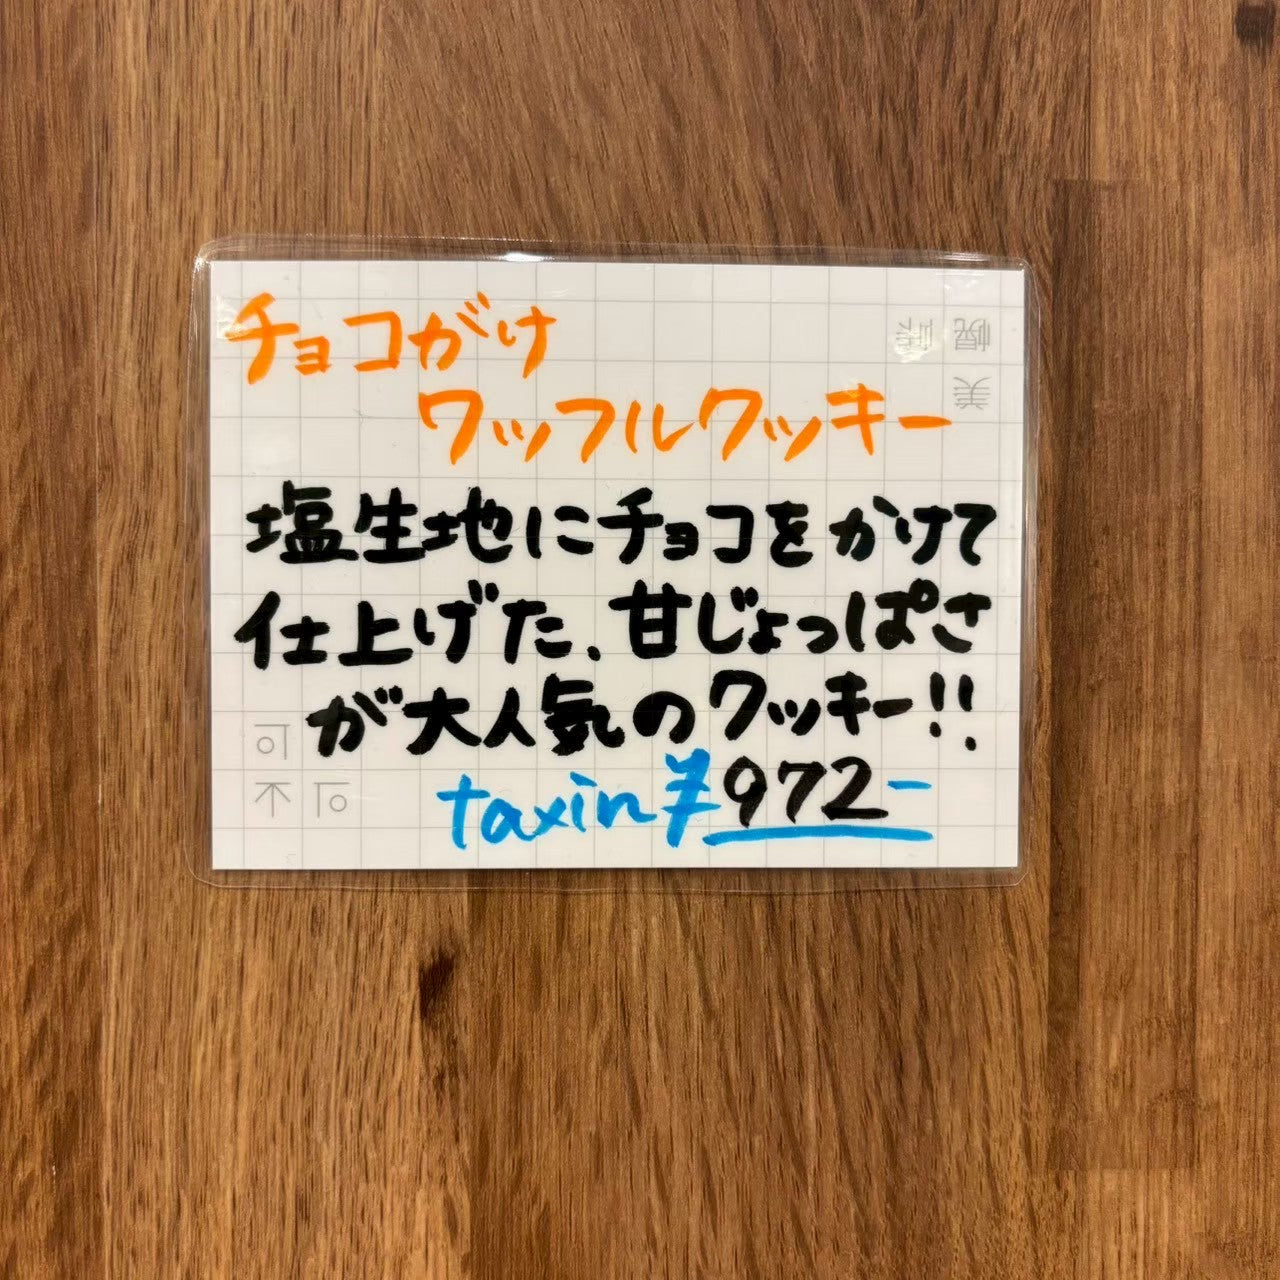 チョコがけ
ワッフルクッキー
塩生地にチョコをかけて
仕上げた、甘じょっぱさ
が大人気のクッキー!!
taxin ¥972-